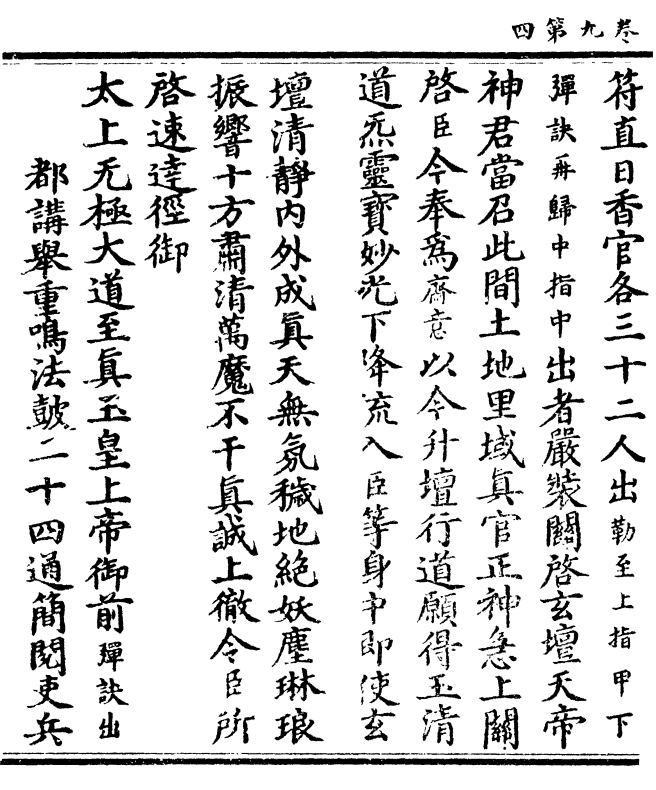 卷九第四
符直日香官各三十二人出勒至上指甲下
彈訣再歸中指中出者嚴裝關啓玄壇天帝
神君當召此間土地里域眞官正神急上關
啓臣今奉爲齋意以今升壇行道願得玉清
道炁靈寶妙光下降流入臣等身中即使玄
壇清靜內外成眞天無氛穢地絶妖塵琳琅
振響十方肅清萬魔不干眞誠上徹令臣所
啓速達徑御
太上无極大道至眞玉皇上帝御前彈訣出
都講舉重鳴法皷二十四通簡閱吏兵